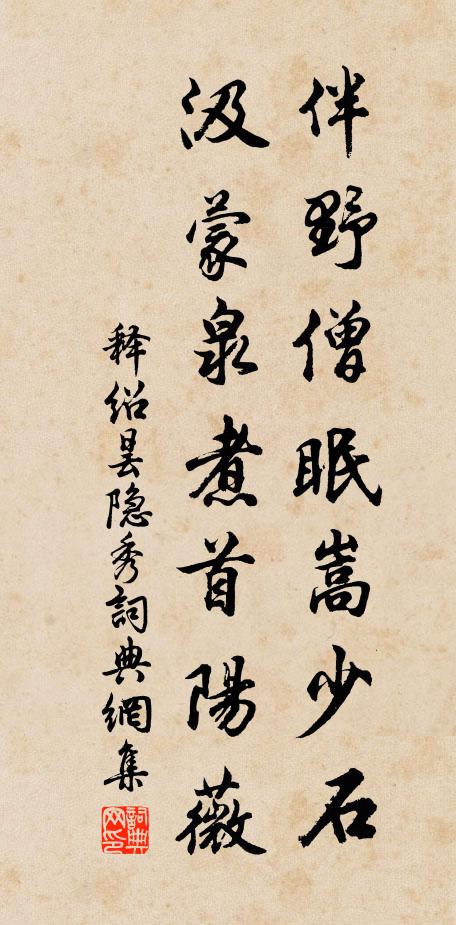 伴野僧眠嵩少石
汲蒙泉煮首陽薇
释绍昙隐秀詞典網集
詞典网印